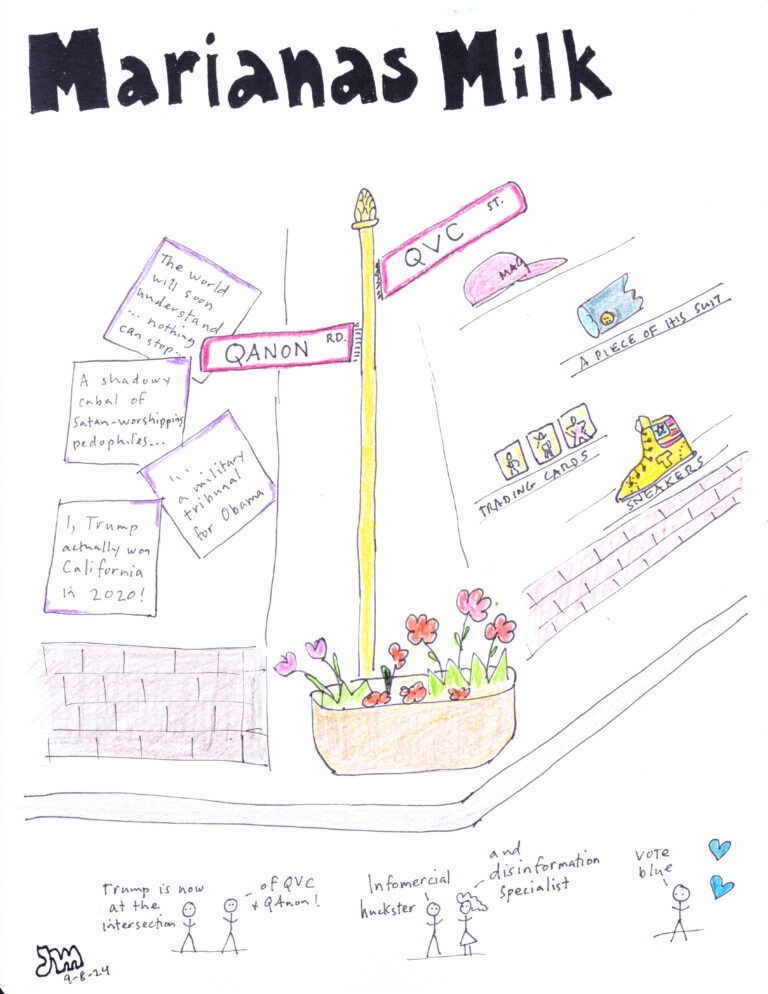 Marianas Milk
QVC ST.
MAG
A PIECE OF HIS SUIT
The world
will soon
understand
... nothing
can stop...
QANON RD.
A shadowy
cabal of
Satan-worshipping
pedophiles...
...
a military
tribunal
for Obama
TRADING CARDS
T
SNEAKERS
I, Trump
actually won
California
in 2020!
Trump is now
at the
intersection
of QVC
+ QAnon!
Infomercial
huckster
and
disinformation
specialist
Vote
blue
JM
9-8-24